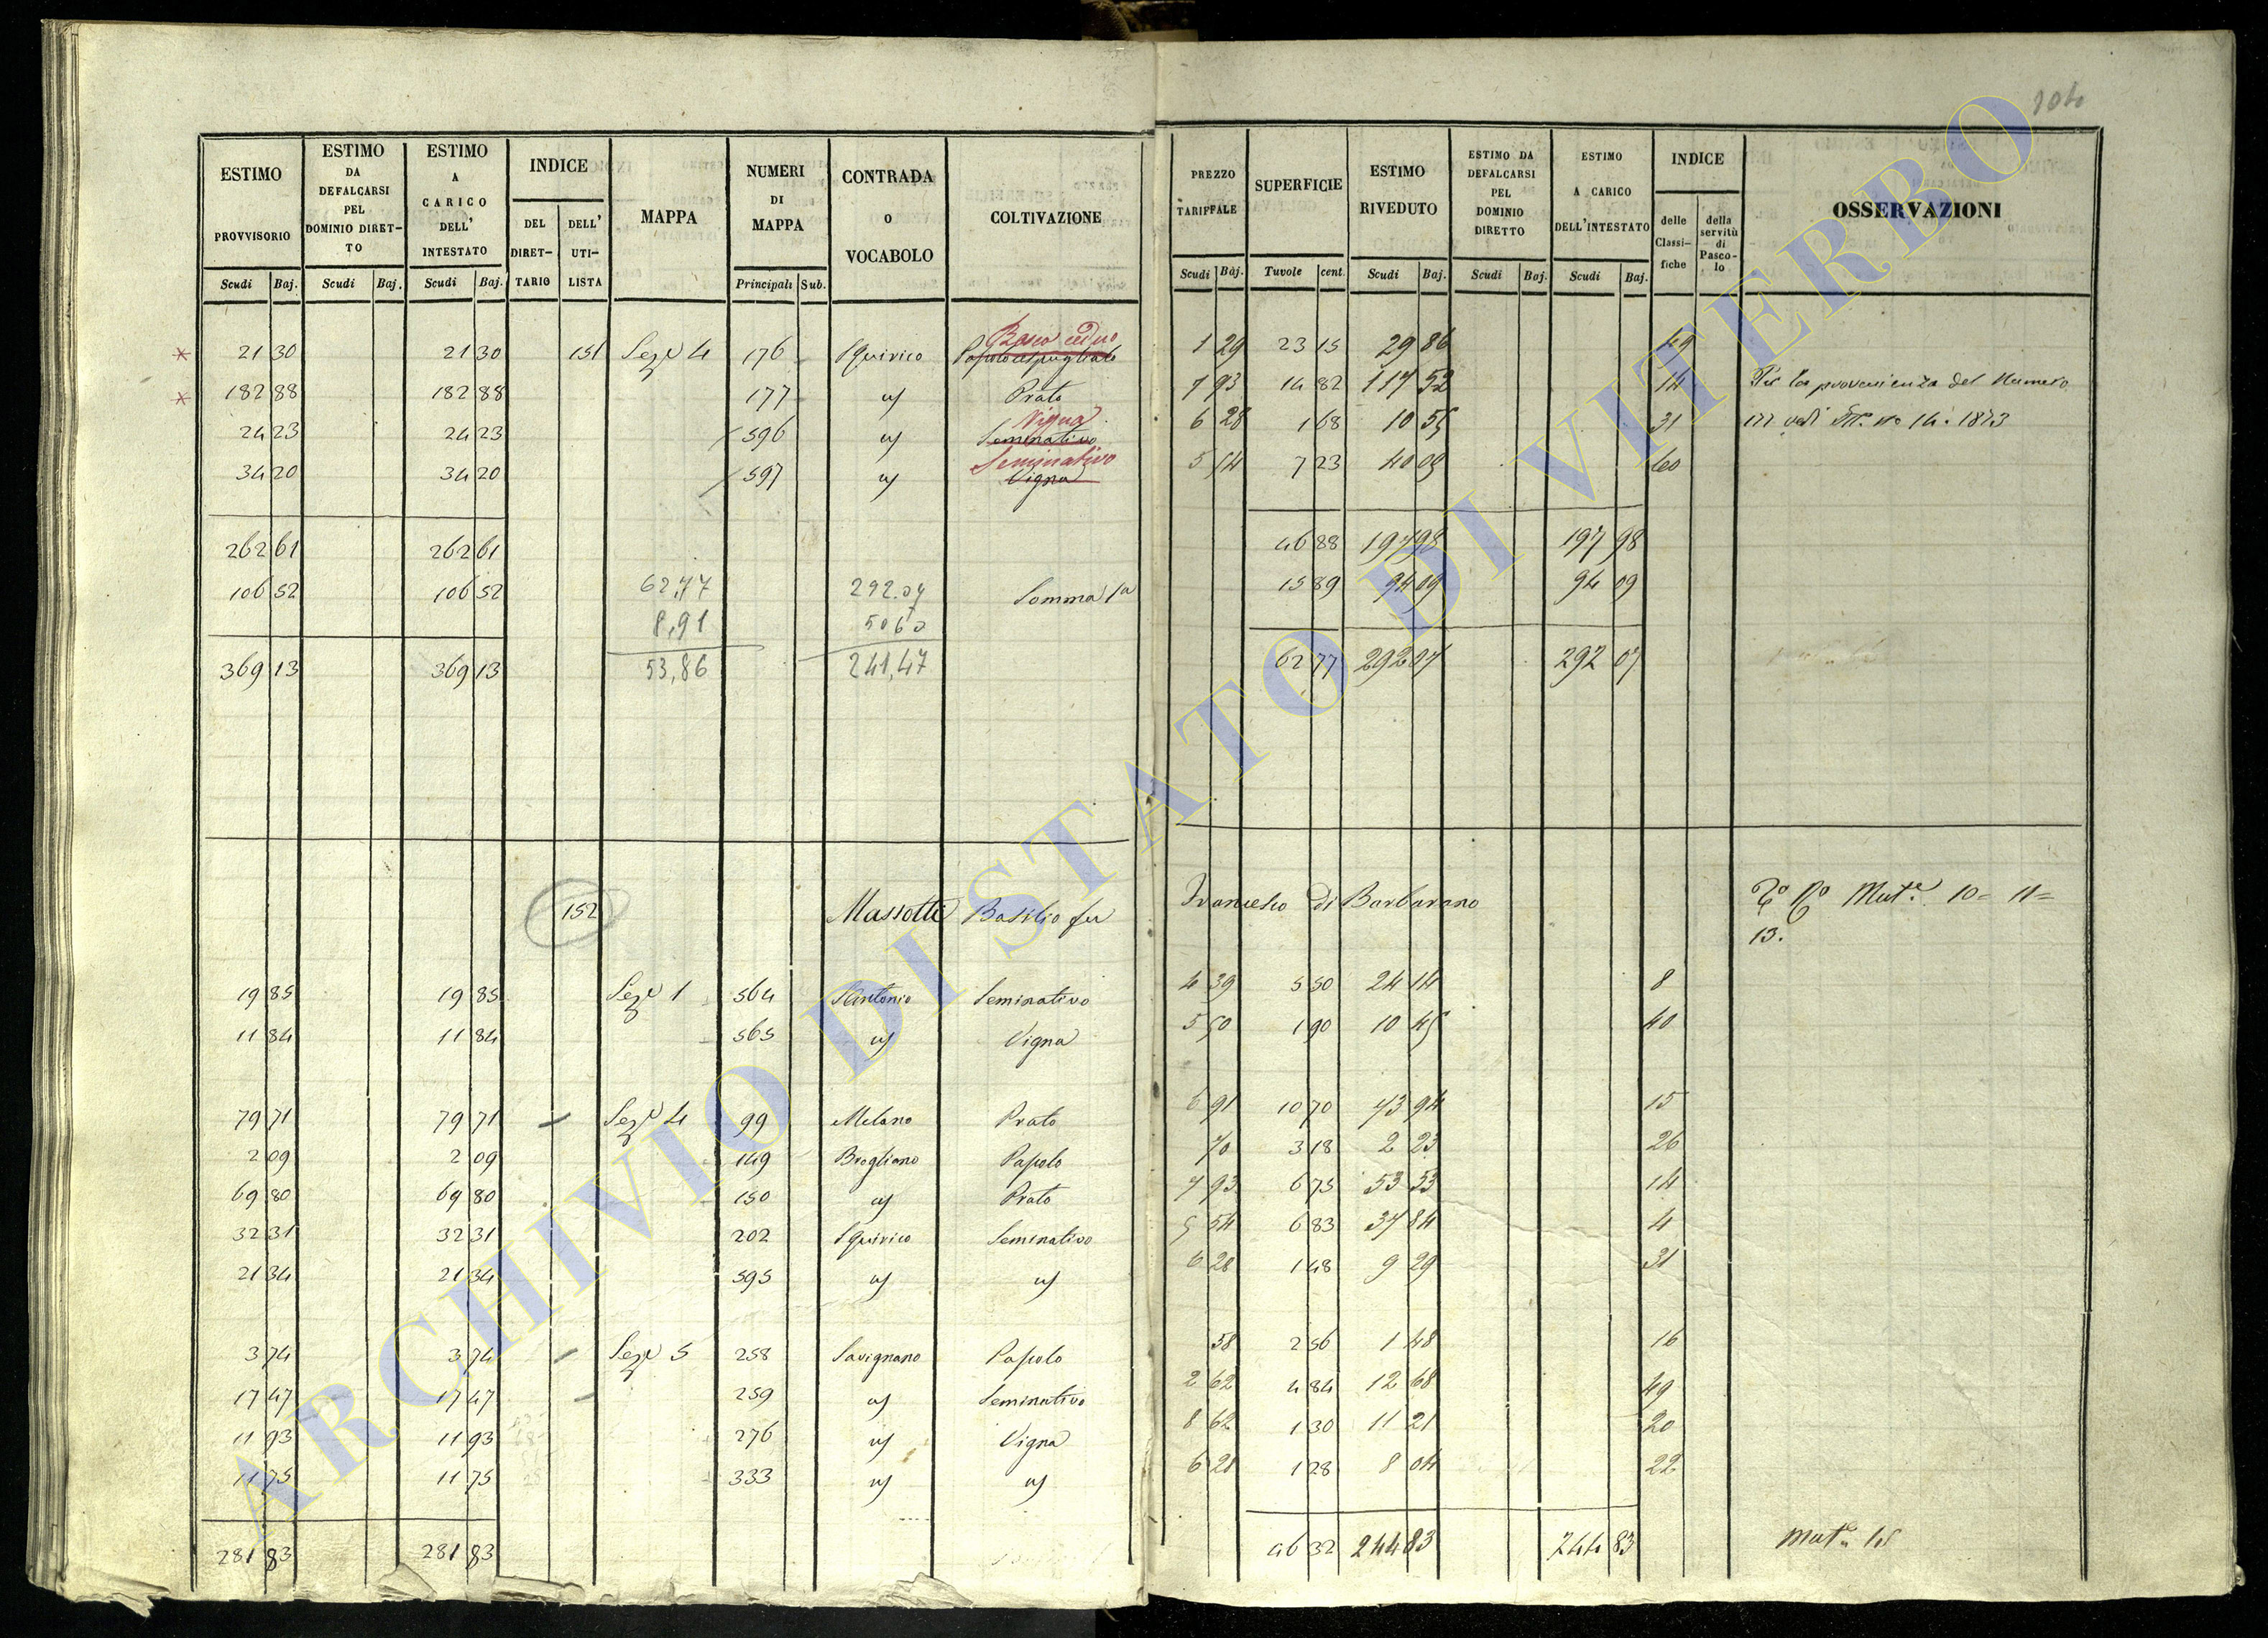 104
ESTIMO PROVVISORIO ESTIMO DA DEFALCARSI PEL DOMINIO DIRETTO ESTIMO A CARICO DELL' INTESTATO INDICE DEL DIRETTARIO DELL' UTILISTA MAPPA NUMERI DI MAPPA CONTRADA O VOCABOLO COLTIVAZIONE PREZZO TARIFFALE SUPERFICIE ESTIMO RIVEDUTO ESTIMO DA DEFALCARSI PEL DOMINIO DIRETTO ESTIMO A CARICO DELL'INTESTATO INDICE delle Classifiche della servitù di Pascolo OSSERVAZIONI
Scudi Baj. Scudi Baj. Scudi Baj. Principali Sub. Scudi Baj. Tavole cent. Scudi Baj. Scudi Baj. Scudi Baj.
Bosco ceduo
21 30 21 30 151 Seze 4 176 S Quirico Pascolo cespugliato 1 29 23 15 29 86 49
182 88 182 88 177 " Prato 7 93 14 82 117 52 14 Per la provenienza del Numero
Vigna
24 23 24 23 596 " Seminativo 6 28 1 68 10 55 31 177 vedi 14. 1873
Seminativo
34 20 34 20 597 " Vigna 5 54 7 23 40 05 60
262 61 262 61 46 88 197 98 197 98
106 52 106 52 62,77 292.07 Somma 1a 15 89 94 09 94 09
8,91 50 60
369 13 369 13 53,86 241,47 62 77 292 07 292 07
152 Massotti Basilio fu Francesco di Barbarano Mute. 10= 11=
13.
19 85 19 85 Seze 1 564 S Antonio Seminativo 4 39 5 50 24 14 8
11 84 11 84 565 " Vigna 5 50 1 90 10 45 40
79 71 79 71 Seze 4 99 Melano Prato 6 91 10 70 73 94 15
2 09 2 09 149 Brogliano Pascolo 70 3 18 2 23 26
69 80 69 80 150 " Prato 7 93 6 75 53 53 14
32 31 32 31 202 S Quirico Seminativo 5 54 6 83 37 84 4
21 34 21 34 595 " " 6 28 1 48 9 29 31
3 74 3 74 Seze 5 258 Savignano Pascolo 58 2 56 1 48 16
17 47 17 47 259 " Seminativo 2 62 4 84 12 68 49
11 93 11 93 276 " Vigna 8 62 1 30 11 21 20
11 75 11 75 333 " " 6 28 1 28 8 04 22
281 83 281 83 46 32 244 83 244 83 Mute. 15
ARCHIVIO DI STATO DI VITERBO